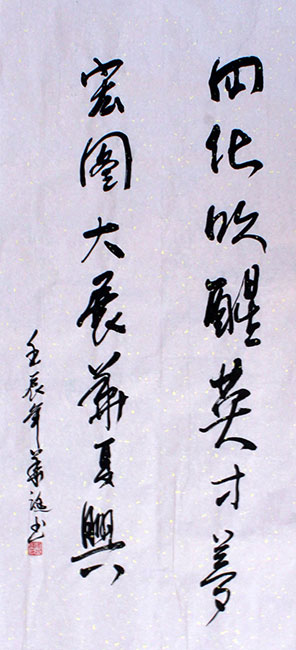 四化吹醒英才梦
宏图大展华夏兴
壬辰年 书